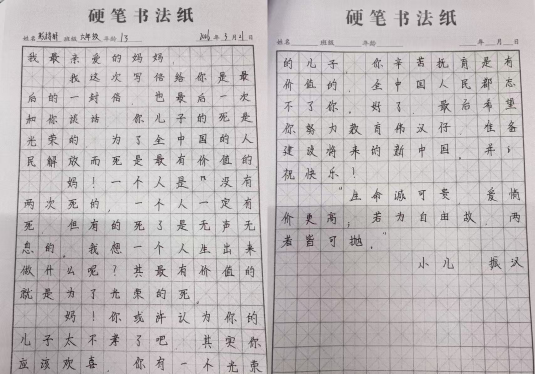 硬笔书法纸
姓名 班级 六年级 年龄 13 年 3 月 21 日
我最亲爱的妈妈:
我这次写信给你是最
后的一封信,也最后一次
和你谈话,你儿子的死是
光荣的,为了全中国的人
民解放而死是最有价值的。
妈!一个人是"没有
两次死的,一个人一定有
死,但有的死了是无声无
息的,我想一个人生出来
做什么呢?其最有价值的
就是为了光荣的死。
妈!你或许认为你的
儿子太不孝了吧,其实你
应该欢喜,你有一个光荣
硬笔书法纸
姓名 班级 年龄 年 月 日
的儿子,你辛苦抚育是有
价值的,全中国人民都忘
不了你,好了,最后希望
你努力教育伟汉仔,准备
建设将来的新中国,并
祝快乐!
"生命诚可贵,爱情
价更高;若为自由故,两
者皆可抛。"
小儿 振汉